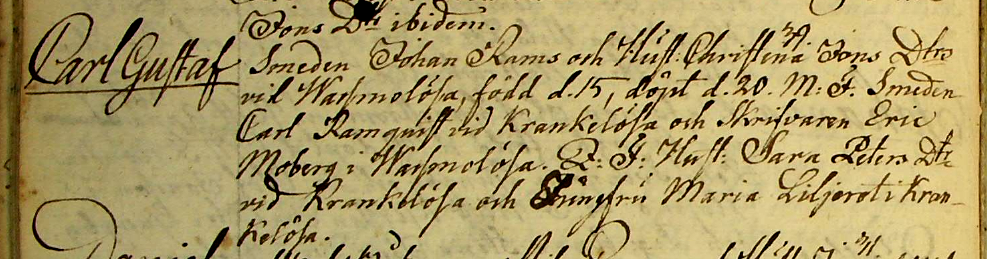 Jons Dtr ibidem.
Carl Gustaf
34
Smeden Johan Rams och Hust: Christina Jons Dtrs
vid Wassmolösa, född d. 15, döpt d. 20. M: F. Smeden
Carl Ramquist vid Krankelösa och Skrifvaren Eric
Moberg i Wassmolösa. Q: F: Hust: Sara Peters Dtr
vid Krankelösa och Jungfru Maria Liljerot i Kran-
kelösa.
Daniel